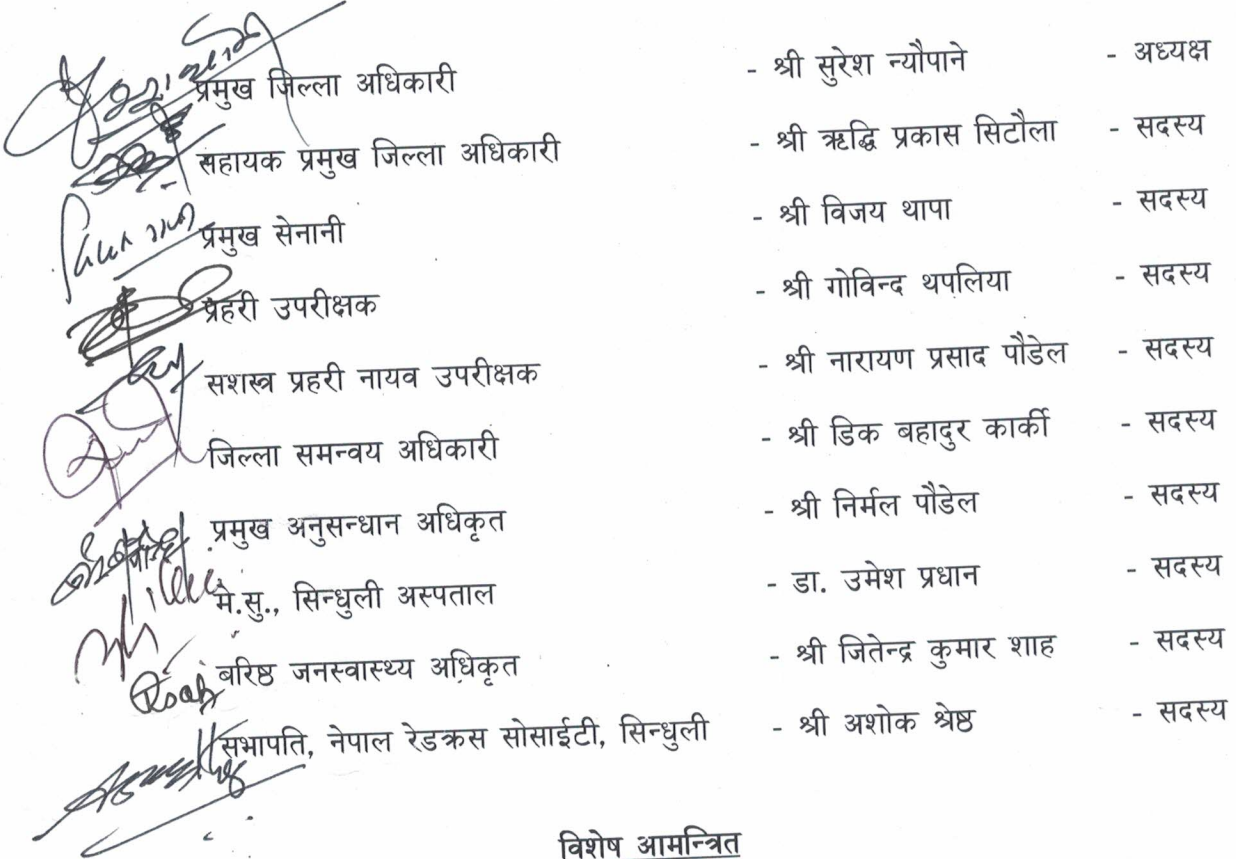 प्रमुख जिल्ला अधिकारी - श्री सुरेश न्यौपाने - अध्यक्ष
सहायक प्रमुख जिल्ला अधिकारी - श्री ऋद्धि प्रकास सिटौला - सदस्य
प्रमुख सेनानी - श्री विजय थापा - सदस्य
प्रहरी उपरीक्षक - श्री गोविन्द थपलिया - सदस्य
सशस्त्र प्रहरी नायव उपरीक्षक - श्री नारायण प्रसाद पौडेल - सदस्य
जिल्ला समन्वय अधिकारी - श्री डिक बहादुर कार्की - सदस्य
प्रमुख अनुसन्धान अधिकृत - श्री निर्मल पौडेल - सदस्य
मे.सु., सिन्धुली अस्पताल - डा. उमेश प्रधान - सदस्य
बरिष्ठ जनस्वास्थ्य अधिकृत - श्री जितेन्द्र कुमार शाह - सदस्य
सभापति, नेपाल रेडक्रस सोसाईटी, सिन्धुली - श्री अशोक श्रेष्ठ - सदस्य
विशेष आमन्त्रित